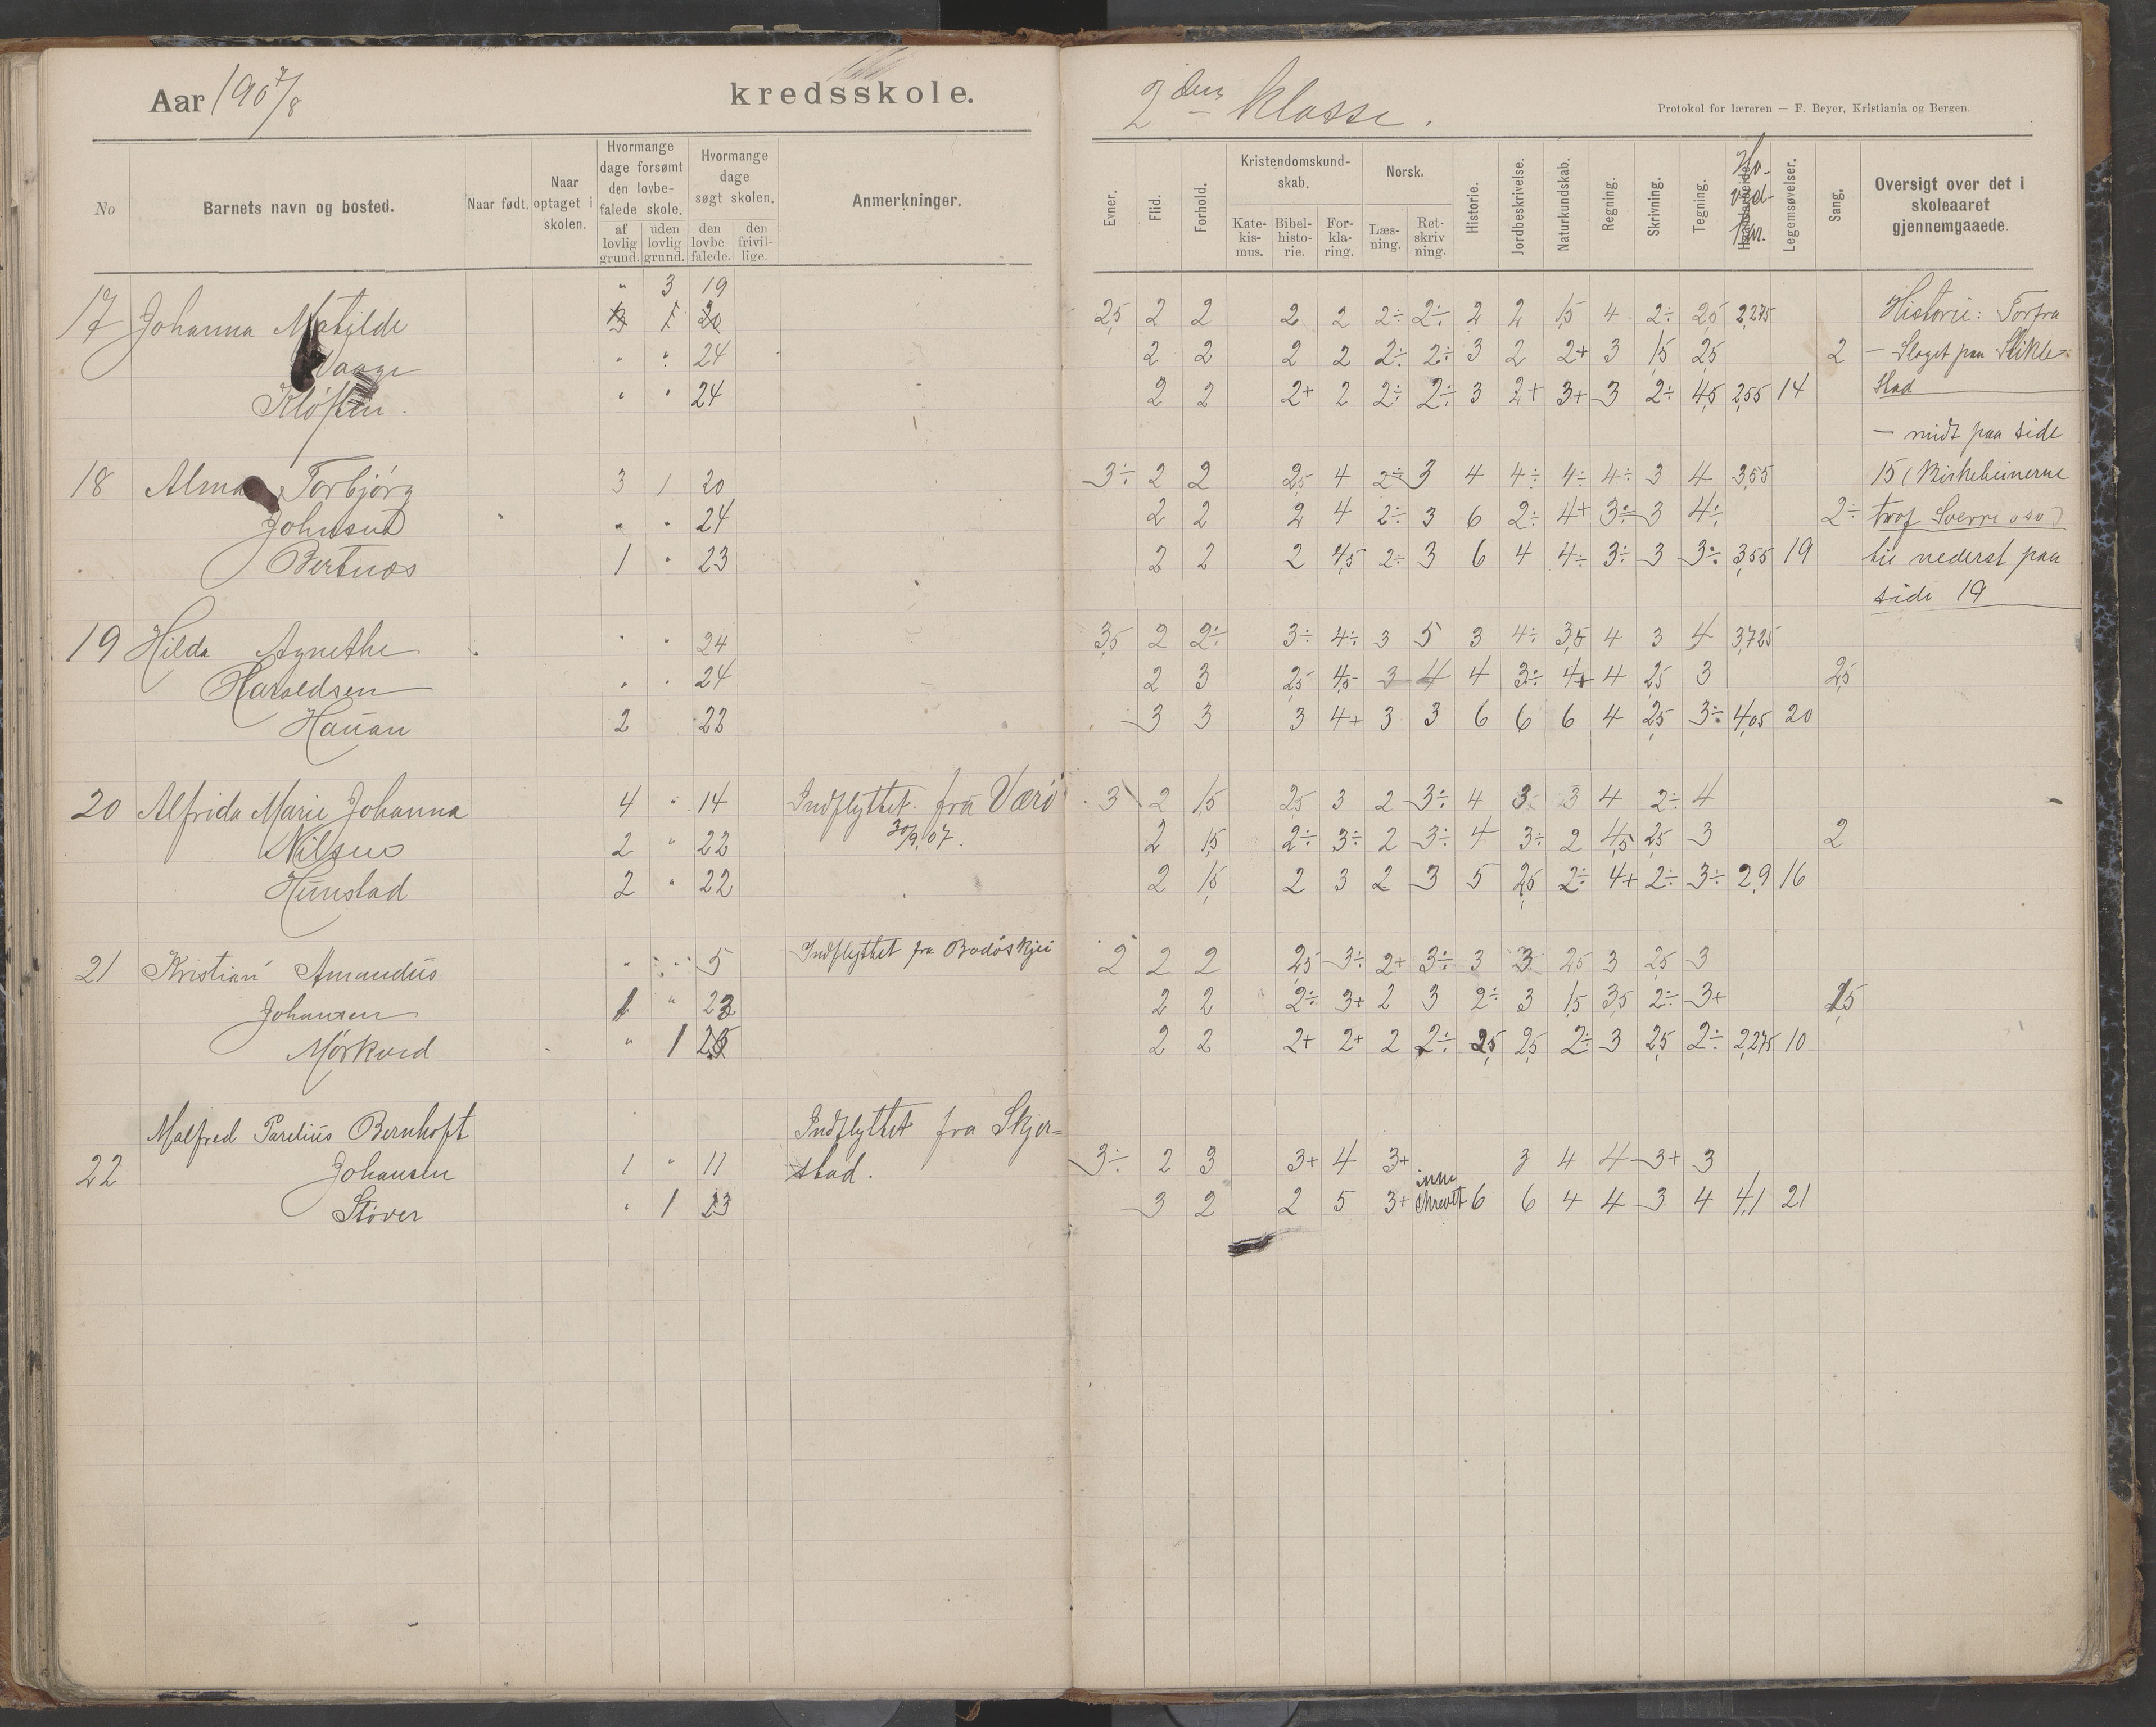 Aar 1907/8 kredsskole.
2den Klasse.
Protokol for læreren — F. Beyer, Kristiania og Bergen.
No
Barnets navn og bosted.
Naar født.
Naar optaget i skolen.
Hvormange dage forsømt den lovbefalede skole.
af lovlig grund.
uden lovlig grund.
Hvormange dage søgt skolen.
den lovbefalede.
den frivillige.
Anmerkninger.
Evner.
Flid.
Forhold.
Kristendomskundskab.
Katekismus.
Bibelhistorie.
Forklaring.
Norsk.
Læsning.
Retskrivning.
Historie.
Jordbeskrivelse.
Naturkundskab.
Regning.
Skrivning.
Tegning.
Legemsøvelser.
Sang.
Oversigt over det i skoleaaret gjennemgaaede.
" 3 19
17 Johanna Matilde 2,5 2 2 2 2 2÷ 2÷ 2 2 1,5 4 2÷ 2,5 2,275 Historie: Forfra
Vaage " " 24 2 2 2 2 2÷ 2÷ 3 2 2+ 3 1,5 2,5 2 – Slaget paa Stikle-
Kløften. " " 24 2 2 2+ 2 2÷ 2÷ 3 2+ 3+ 3 2÷ 4,5 2,55 14 stad
– midt paa side
18 Alma Torbjørg 3 1 20 3÷ 2 2 2,5 4 2÷ 3 4 4÷ 4÷ 4÷ 3 4 3,55 15 (Birkebeinerne
Johnsen " " 24 2 2 2 4 2÷ 3 6 2÷ 4+ 3÷ 3 4÷ 2÷ traf Sverre osv)
Bertnes 1 " 23 2 2 2 4,5 2÷ 3 6 4 4÷ 3÷ 3 3÷ 3,55 19 til nederst paa
side 19
19 Hilda Agnethe " " 24 3,5 2 2÷ 3÷ 4÷ 3 5 3 4÷ 3,5 4 3 4 3,725
Haraldsen " " 24 2 3 2,5 4,5 3 4 4 3÷ 4+ 4 2,5 3 2,5
Hauan 2 22 3 3 3 4+ 3 3 6 6 6 4 2,5 3÷ 4,05 20
20 Alfrida Marie Johanna 4 " 14 Indflyttet fra Værø 3 2 1,5 2,5 3 2 3÷ 4 3 3 4 2÷ 4
Nilsen 2 " 22 30/9.07. 2 1,5 2÷ 3÷ 2 3÷ 4 3÷ 2 4,5 2,5 3 2
Hunstad 2 " 22 2 1,5 2 3 2 3 5 2,5 2÷ 4+ 2÷ 3÷ 2,9 16
21 Kristian Amandus " " 5 Indflyttet fra Bodøskjei 2 2 2 2,5 3÷ 2+ 3÷ 3 3 2,5 3 2,5 3
Johansen 1 " 23 2 2 2÷ 3+ 2 3 2÷ 3 1,5 3,5 2÷ 3+ 1,5
Mørkved " 1 2 2 2+ 2+ 2 2÷ 2,5 2,5 2÷ 3 2,5 2÷ 2,275 10
Malfred Parelius Bernhoft Indflyttet fra Skjer-
22 Johansen 1 " 11 stad. 3÷ 2 3 3+ 4 3+ 3 4 4 3+ 3
Støver " 1 23 3 2 2 5 3+ skrevet 6 6 4 4 3 4 4,1 21